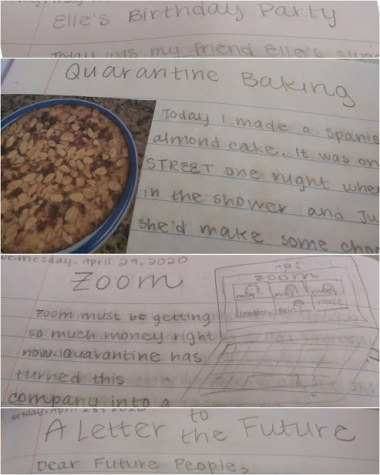 Elle's Birthday Party
Today was my friend Elle's
Quarantine Baking
Today I made a spanis
almond cake. It was on
STREET one night when
in the shower and Ju
she'd make some cho
Wednesday, April 29, 2020
Zoom
zoom
zoom must be getting
so much money right
now. Quarantine has
turned this
company into a
A Letter to the Future
Dear Future People,